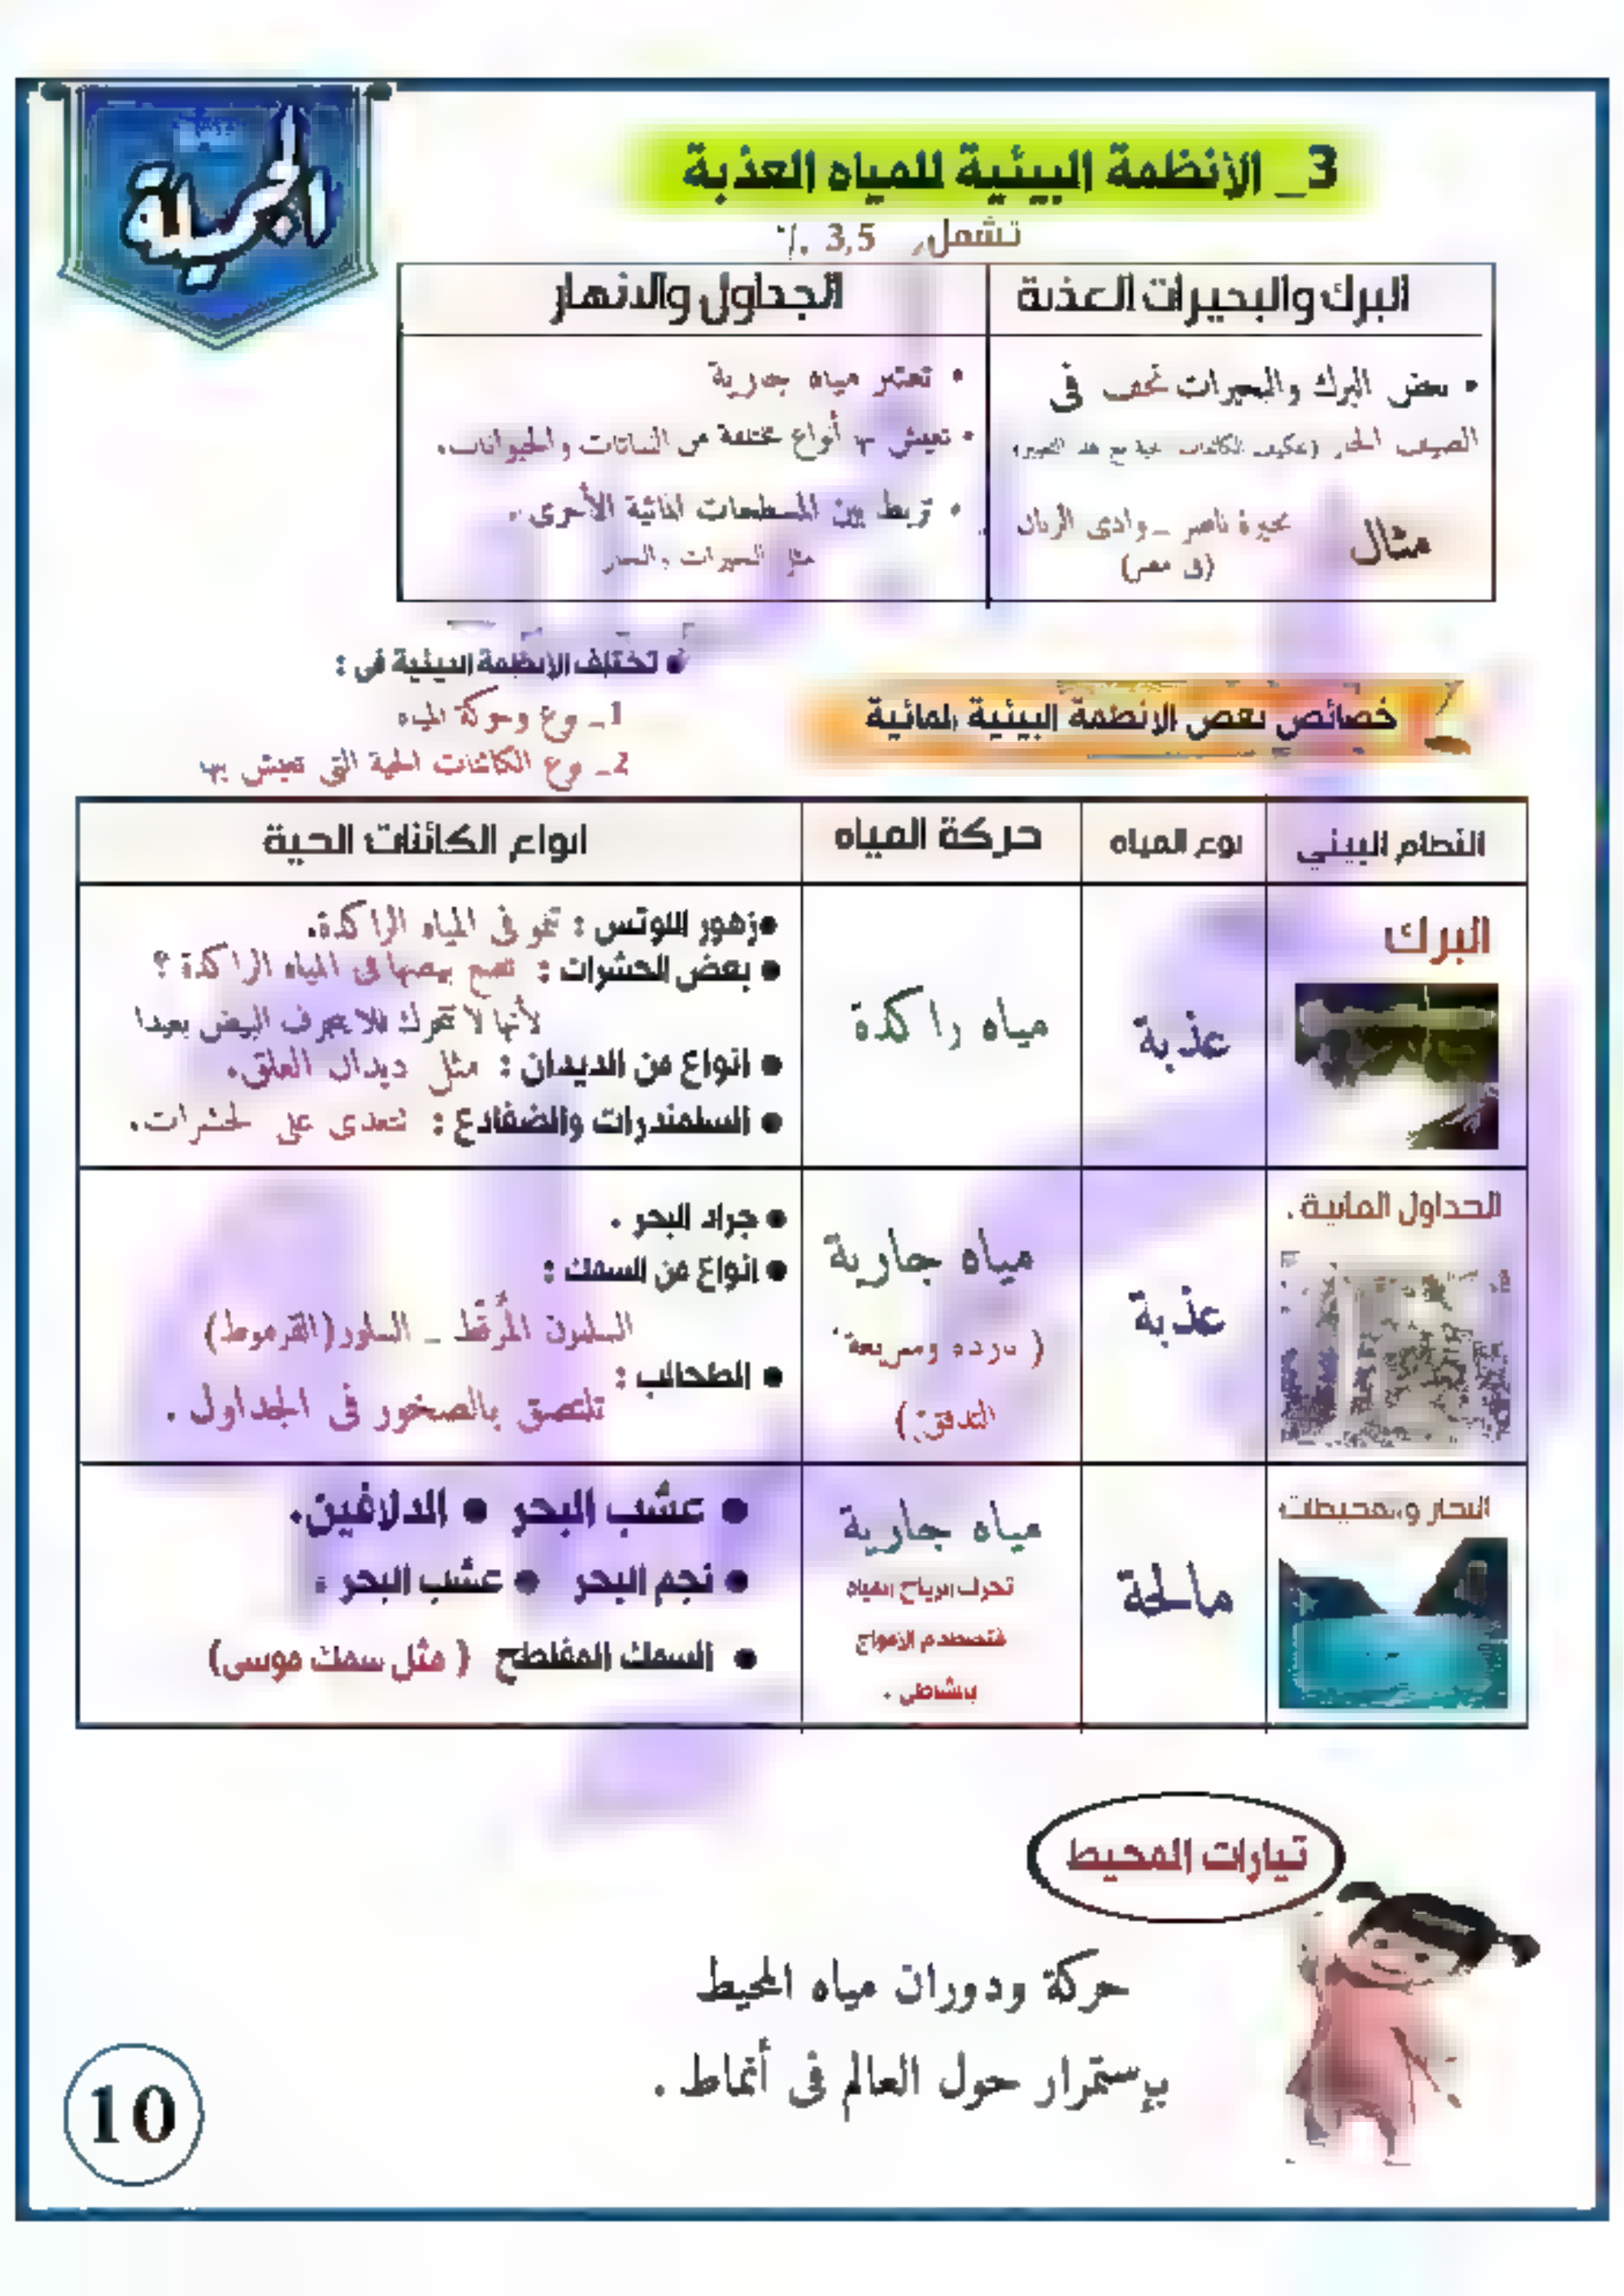 الجميلة
3_ الأنظمة البيئية للمياه العذبة
تشمل 3,5 ٪
البرك والبحيرات العذبة
الجداول والانهار
• بعض البرك والبحيرات تجف فى
الصيف الحار (تتكيف الكائنات الحية مع هذا التغيير)
مثال
بحيرة ناصر _ وادى الريان
(فى مصر)
• تعتبر مياه جارية
• تعيش بها أنواع مختلفة من النباتات والحيوانات.
• تربط بين المسطحات المائية الأخرى .
مثل البحيرات والبحار
خصائص بعض الانظمة البيئية المائية
• تختلف الانظمة البيئية فى :
1_ نوع وحركة المياه
2_ نوع الكائنات الحية التى تعيش بها
النظام البيئي
نوع المياه
حركة المياه
انواع الكائنات الحية
البرك
عذبة
مياه راكدة
• زهور اللوتس : تنمو فى المياه الراكدة.
• بعض الحشرات : تضع بيضها فى المياه الراكدة ؟
لأنها لا تتحرك فلا يجرف البيض بعيدا
• انواع من الديدان : مثل ديدان العلق.
• السلمندرات والضفادع : تتغذى على الحشرات.
الجداول المائية .
عذبة
مياه جارية
( باردة وسريعة
التدفق)
• جراد البحر .
• انواع من السمك :
السلمون المُرقط _ السلور(القرموط)
• الطحالب :
تلتصق بالصخور فى الجداول .
البحار والمحيطات
مالحة
مياه جارية
تحرك الرياح المياه
فتصطدم الامواج
بالشاطى .
• عشب البحر • الدلافين.
• نجم البحر • عشب البحر .
• السمك المفلطح ( مثل سمك موسى)
تيارات المحيط
حركة ودوران مياه المحيط
بإستمرار حول العالم فى أنماط .
10